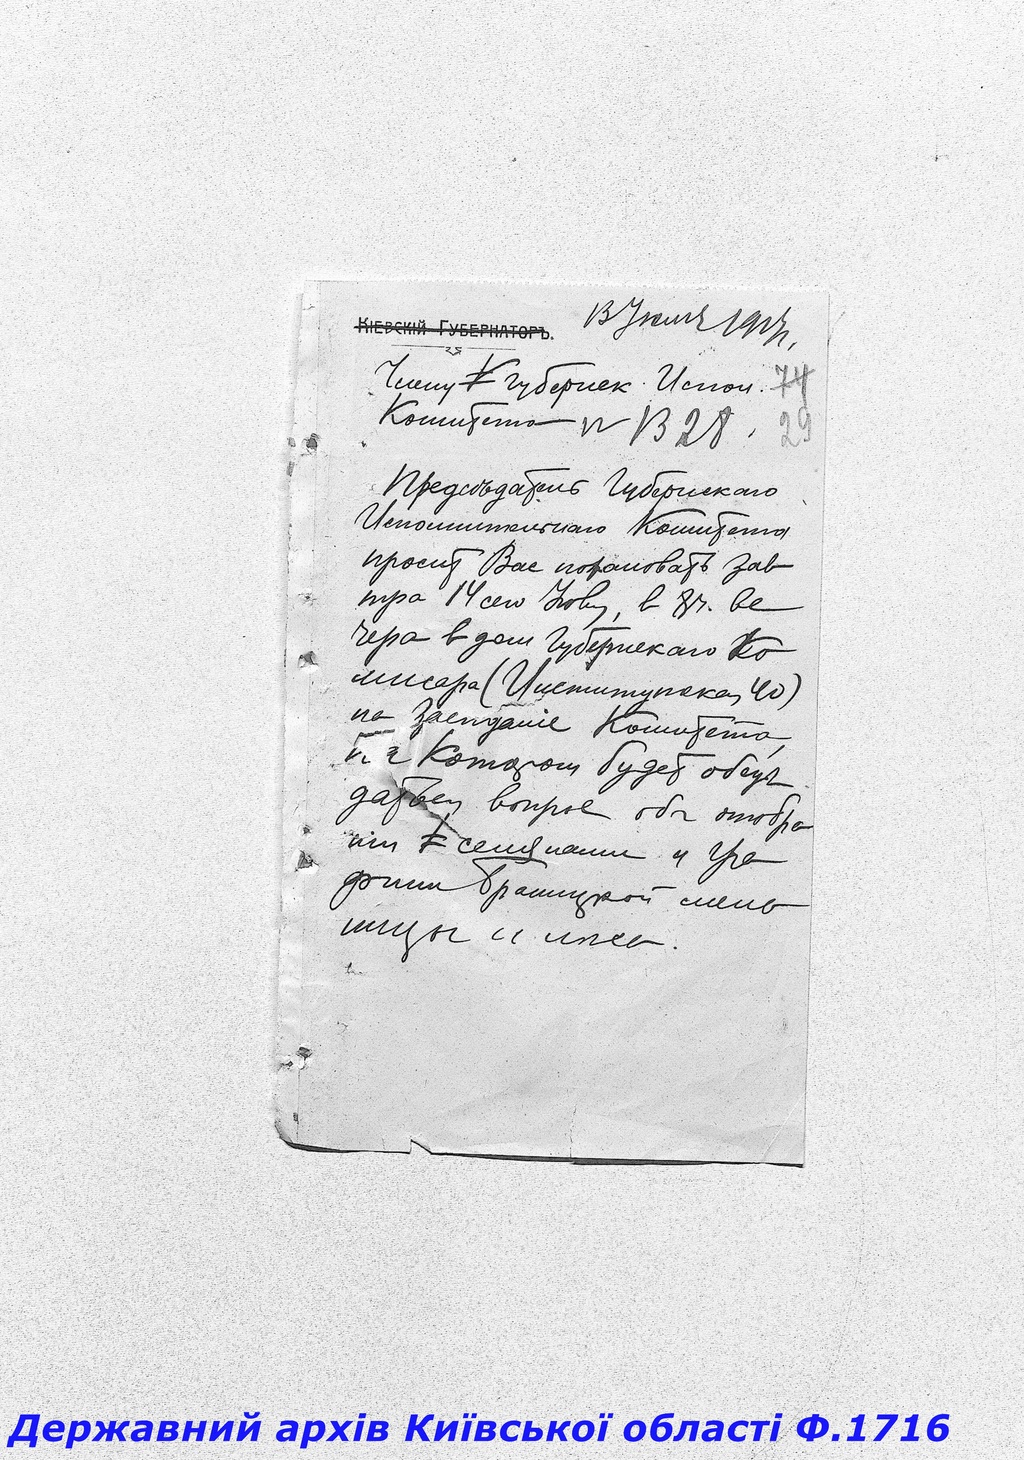 КІЕВСКІЙ ГУБЕРНАТОРЪ.
13 Июля 1917 г.
Члену Губернск. Испол. 74
Комитета 1328. 29
Председатель Губернскаго
Исполнительнаго Комитета
просит Вас пожаловать зав
тра 14 сего Июля, в 8 ч. ве
чера в дом Губернскаго Ко
мисара (Институтская, 40)
на заседаніе Комитета,
в котором будет обсуж
даться вопрос об отобра
ніи селянами у Гра
фини Браницкой мель
ницы и леса.
Державний архів Київської області Ф.1716